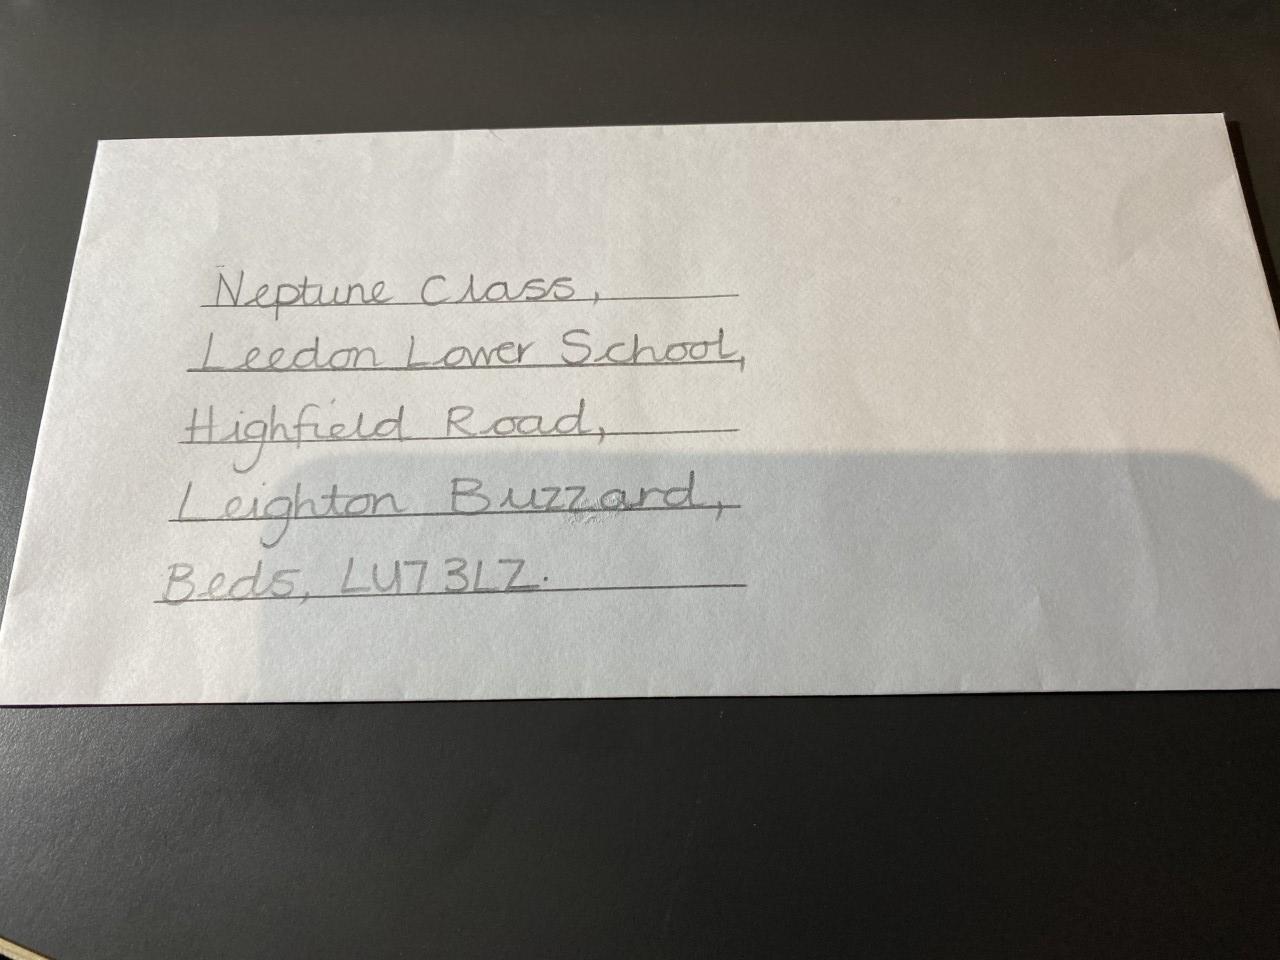 Neptune Class,
Leedon Lower School,
Highfield Road,
Leighton Buzzard,
Beds, LU7 3LZ.